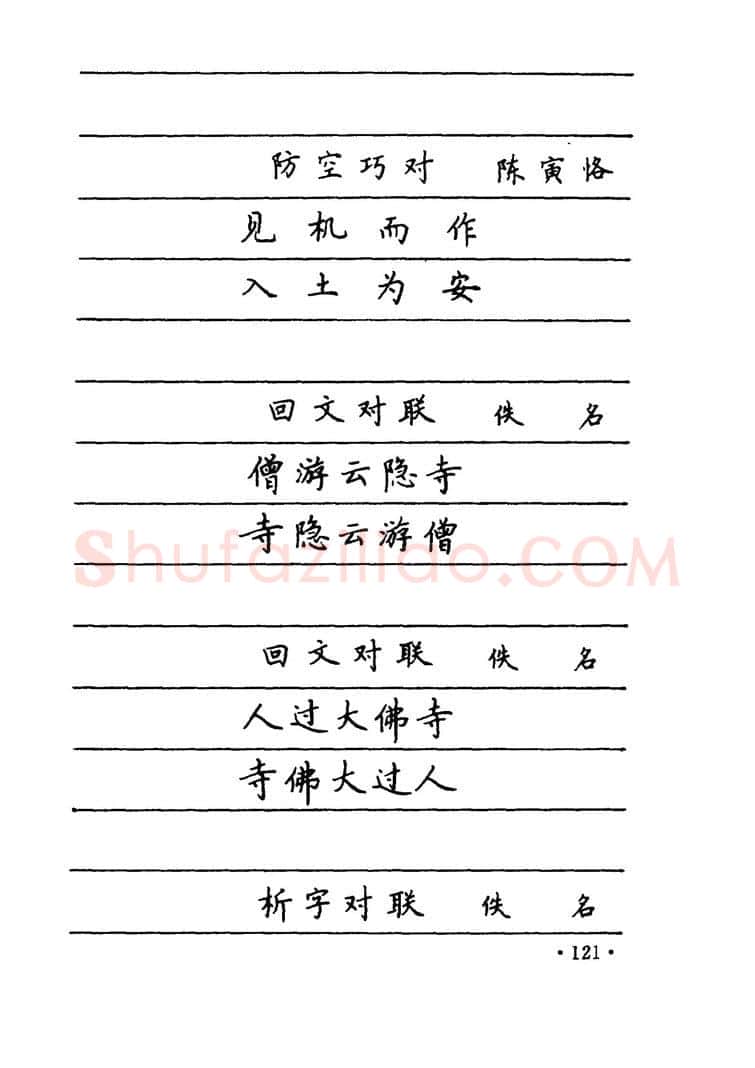 防空巧对 陈寅恪
见机而作
入土为安
回文对联 佚名
僧游云隐寺
寺隐云游僧
shufaziliao.COM
回文对联 佚名
人过大佛寺
寺佛大过人
析字对联 佚名
·121·